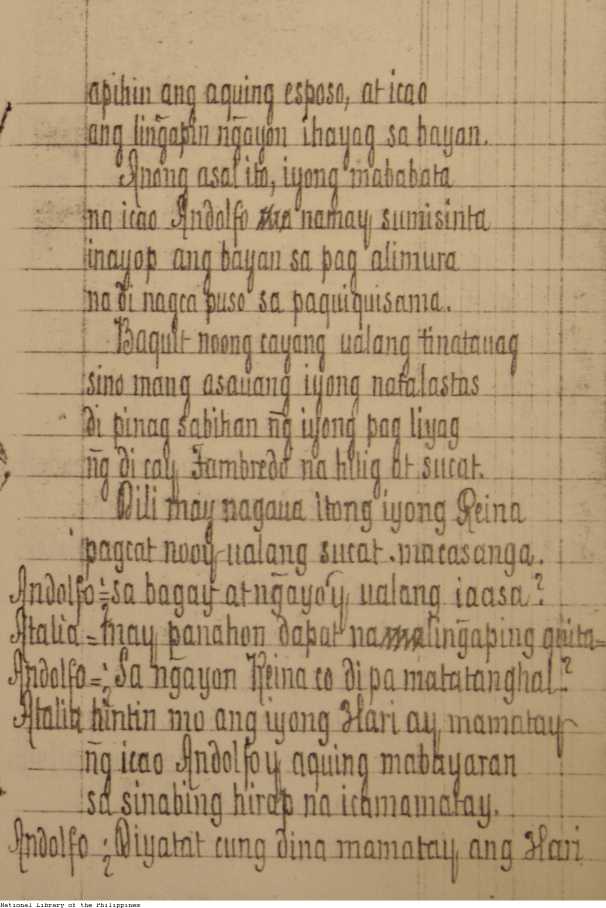 apihin ang aquing esposo, at icao
ang lingapin ng̃ayon ihayag sa bayan.
Anong asal ito, iyong mababata
na icao Andolfo na namay sumisinta
inayop ang bayan sa pag alimura
na di nagca puso sa paquiquisama.
Baquit noong cayang ualang tinatauag
sino mang asauang iyong natalastas
di pinag sabihan ng̃ iyong pag liyag
ng̃ di cay Jambredo na hilig at sucat.
Dili may nagaua itong iyong Reina
pagcat nooy ualang sucat macasanga.
Andolfo = ¿sa bagay at ng̃ayo'y ualang iaasa?
Atalia = may panahon dapat na ling̃aping
Andolfo = ¿Sa ng̃ayon Reina co di pa matatanghal?
Atalia hintin mo ang iyong Hari ay mamatay
ng̃ icao Andolfo y aquing mabayaran
sa sinabing hirap na icamamatay.
Andolfo ¿Diyatat cung dina mamatay ang Hari
National Library of the Philippines